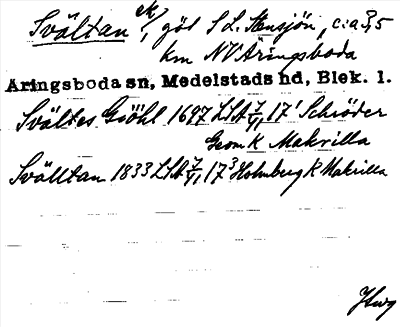 Svältan , göl S L. Stensjön, c:a 3,5
km NV Aringsboda
Aringsboda sn, Medelstads hd, Blek. l.
Svältes Giöhl 1697 LSA 17¹ Schröder
Geom K Makrilla
Svälltan 1833 LSA 17³ Holmberg K Makrilla